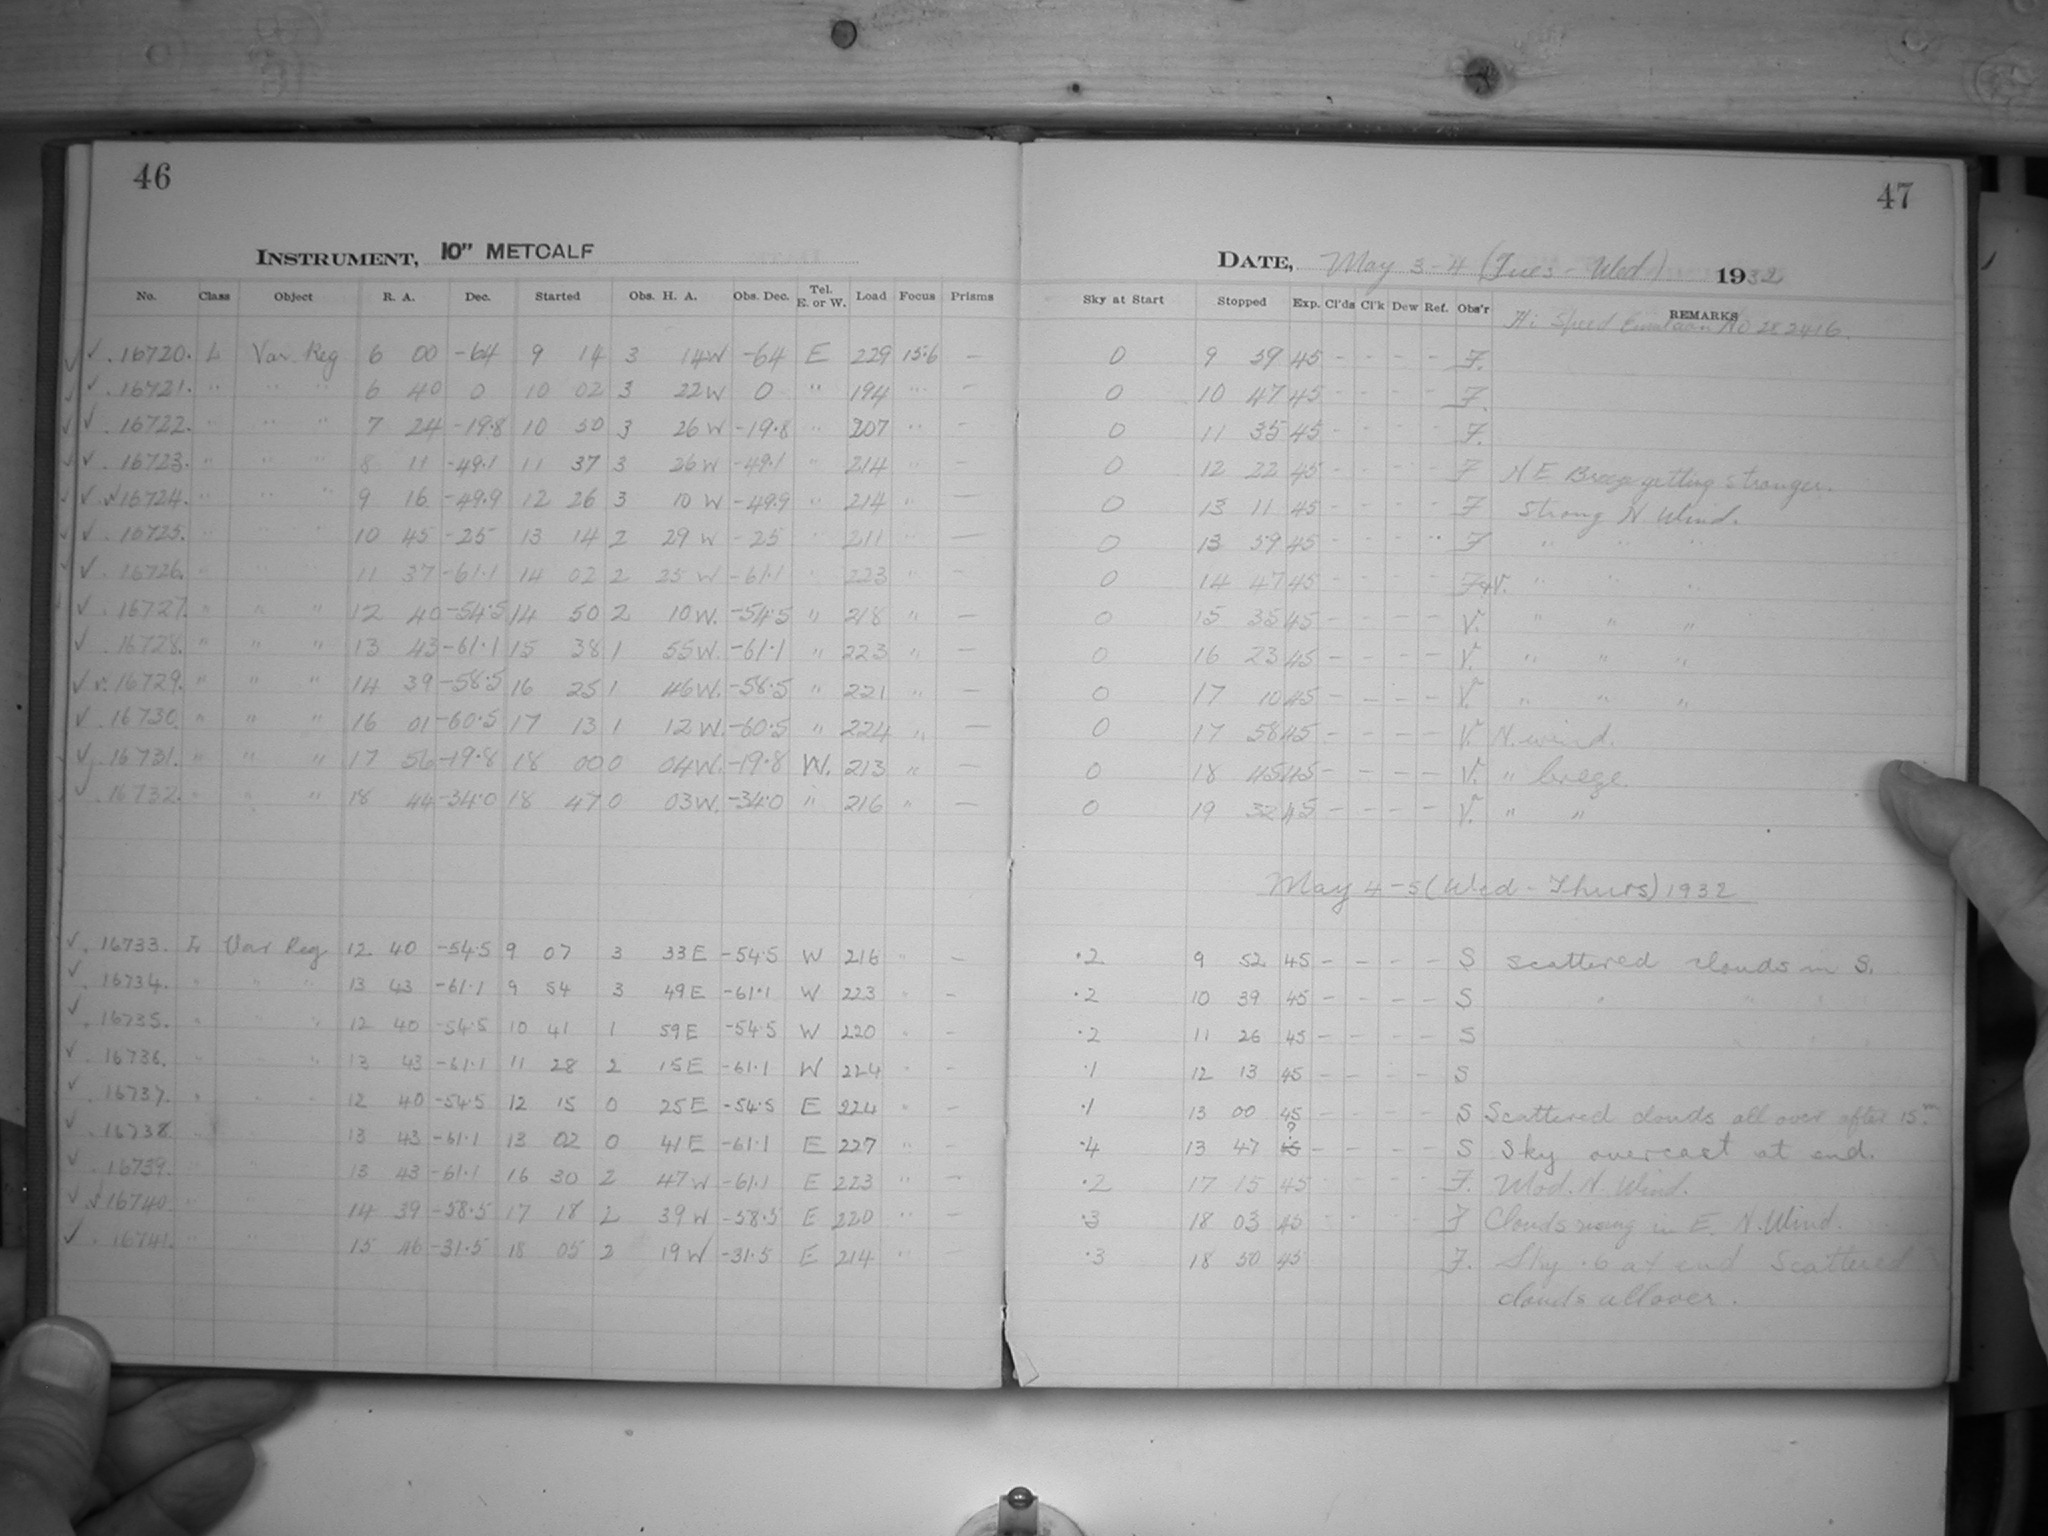 46
INSTRUMENT, 10" METCALF
No. Class Object R. A. Dec. Started Obs. H. A. Obs. Dec. Tel. E. or W. Load Focus Prisms
✓ ✓ . 16720. L Var Reg 6 00 -64 9 14 3 14W -64 E 229 15.6 —
✓ ✓ . 16721. " " " 6 40 0 10 02 3 22W 0 " 194 " -
✓ ✓ . 16722. " " " 7 24 -19.8 10 50 3 26W -19.8 " 207 " -
✓ ✓ . 16723. " " " 8 11 -49.1 11 37 3 26W -49.1 " 214 " —
✓ ✓ 16724. " " " 9 16 -49.9 12 26 3 10W -49.9 " 214 " —
✓ ✓ . 16725. " 10 45 -25 13 14 2 29W -25 " 211 " —
✓ . 16726. " " " 11 37 -61.1 14 02 2 25W -61.1 " 223 " —
✓ . 16727. " " " 12 40 -54.5 14 50 2 10W. -54.5 " 218 " —
✓ . 16728. " " " 13 43 -61.1 15 38 1 55W. -61.1 " 223 " —
✓ . 16729. " " " 14 39 -58.5 16 25 1 46W. -58.5 " 221 " —
✓ . 16730. " " " 16 01 -60.5 17 13 1 12W. -60.5 " 224 " —
✓ . 16731. " " " 17 56 -19.8 18 00 0 04W. -19.8 W. 213 " —
✓ . 16732. " " " 18 44 -34.0 18 47 0 03W. -34.0 " 216 " —
✓ . 16733. L Var Reg 12 40 -54.5 9 07 3 33E -54.5 W 216 " —
✓ . 16734. " " " 13 43 -61.1 9 54 3 49E -61.1 W 223 " -
✓ . 16735. " " " 12 40 -54.5 10 41 1 59E -54.5 W 220 " -
✓ . 16736. " " " 13 43 -61.1 11 28 2 15E -61.1 W 224 " -
✓ . 16737. " " " 12 40 -54.5 12 15 0 25E -54.5 E 224 " -
✓ . 16738. " 13 43 -61.1 13 02 0 41E -61.1 E 227 " -
✓ . 16739. " " 13 43 -61.1 16 30 2 47W -61.1 E 223 " -
✓ ✓ 16740. " " 14 39 -58.5 17 18 2 39W -58.5 E 220 " -
✓ . 16741. " " 15 46 -31.5 18 05 2 19W -31.5 E 214 "
47
DATE, May 3-4 (Tues - Wed) 1932
Sky at Start Stopped Exp. Cl'ds Cl'k Dew Ref. Obs'r REMARKS
Hi Speed No 282416.
0 9 59 45 - - - - F.
0 10 47 45 - - - - F.
0 11 35 45 - - - - F.
0 12 22 45 - - - - F N E Breeze getting stronger.
0 13 11 45 - - - - F Strong N. Wind.
0 13 59 45 - - - " F " " "
0 14 47 45 - - - - F+V. " " "
0 15 35 45 - - - - V. " " "
0 16 23 45 - - - - V. " " "
0 17 10 45 - - - - V. " " "
0 17 58 45 - - - - V. N. wind.
0 18 45 45 - - - - V. " breeze.
0 19 32 45 - - - - V. " "
May 4-5 (Wed - Thurs) 1932
.2 9 52 45 - - - - S scattered clouds in S.
.2 10 39 45 - - - - S " " " "
.2 11 26 45 - - - - S
.1 12 13 45 - - - - S
.1 13 00 45 - - - - S Scattered clouds all over after 15m.
.4 13 47 ? 45 - - - - S Sky overcast at end.
.2 17 15 45 - - - - F. Mod. N. Wind.
.3 18 03 45 - - - - F Clouds rising in E. N. Wind.
.3 18 50 45 F. Sky .6 at end Scattered
clouds all over.